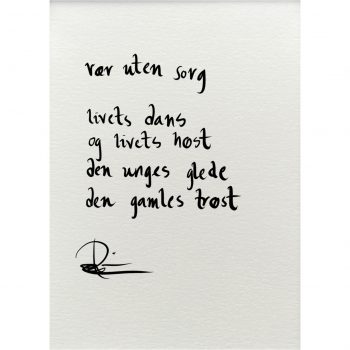 vær uten sorg
livets dans
og livets høst
den unges glede
den gamles trøst